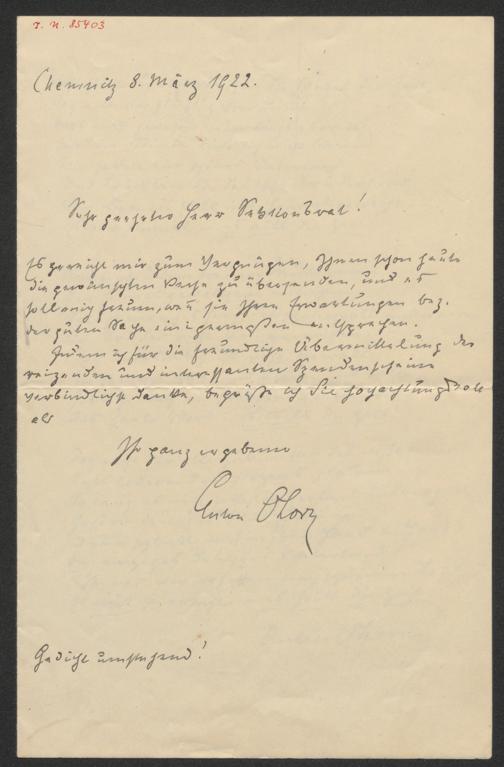 I. N. 85403
Chemnitz 8. März 1922.
Sehr geehrter Herr Sektionsrat!
Es gereicht mir zum Vergnügen, Ihnen schon heute
die gewünschten Verse zu übersenden, und es
soll mich freuen, wenn sie Ihren Erwartungen bez.
der guten Sache einigermaßen entsprechen.
Indem ich für die freundliche Übermittelung der
reizenden und interessanten Spendenscheine
verbindlichst danke, begrüße ich Sie hochachtungsvoll
als
Ihr ganz ergebener
Anton Ohorn
Gedicht umstehend!